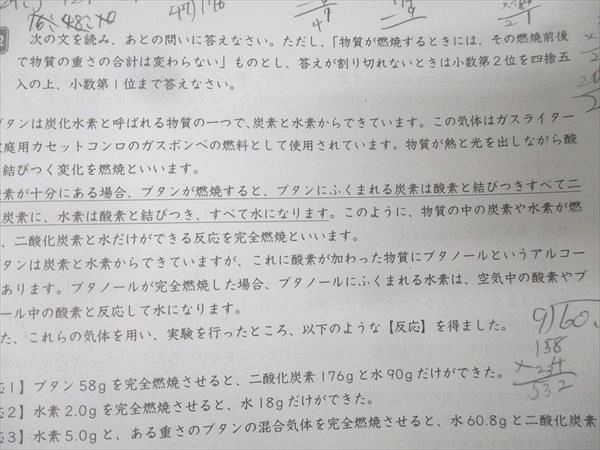 76÷48=×0
47)176
47
21
2
次の文を読み、あとの問いに答えなさい。ただし、「物質が燃焼するときには、その燃焼前後
で物質の重さの合計は変わらない」ものとし、答えが割り切れないときは小数第2位を四捨五
入の上、小数第1位まで答えなさい。
ブタンは炭化水素と呼ばれる物質の一つで、炭素と水素からできています。この気体はガスライター
庭用カセットコンロのガスボンベの燃料として使用されています。物質が熱と光を出しながら酸
結びつく変化を燃焼といいます。
素が十分にある場合、ブタンが燃焼すると、ブタンにふくまれる炭素は酸素と結びつきすべて二
炭素に、水素は酸素と結びつき、すべて水になります。このように、物質の中の炭素や水素が燃
、二酸化炭素と水だけができる反応を完全燃焼といいます。
タンは炭素と水素からできていますが、これに酸素が加わった物質にブタノールというアルコー
あります。ブタノールが完全燃焼した場合、ブタノールにふくまれる水素は、空気中の酸素やブ
ール中の酸素と反応して水になります。
た、これらの気体を用い、実験を行ったところ、以下のような【反応】を得ました。
9)60
158
×234
532
応1】ブタン58gを完全燃焼させると、二酸化炭素176gと水90gだけができた。
応2】水素2.0gを完全燃焼させると、水18gだけができた。
応3】水素5.0gと、ある重さのブタンの混合気体を完全燃焼させると、水60.8gと二酸化炭素